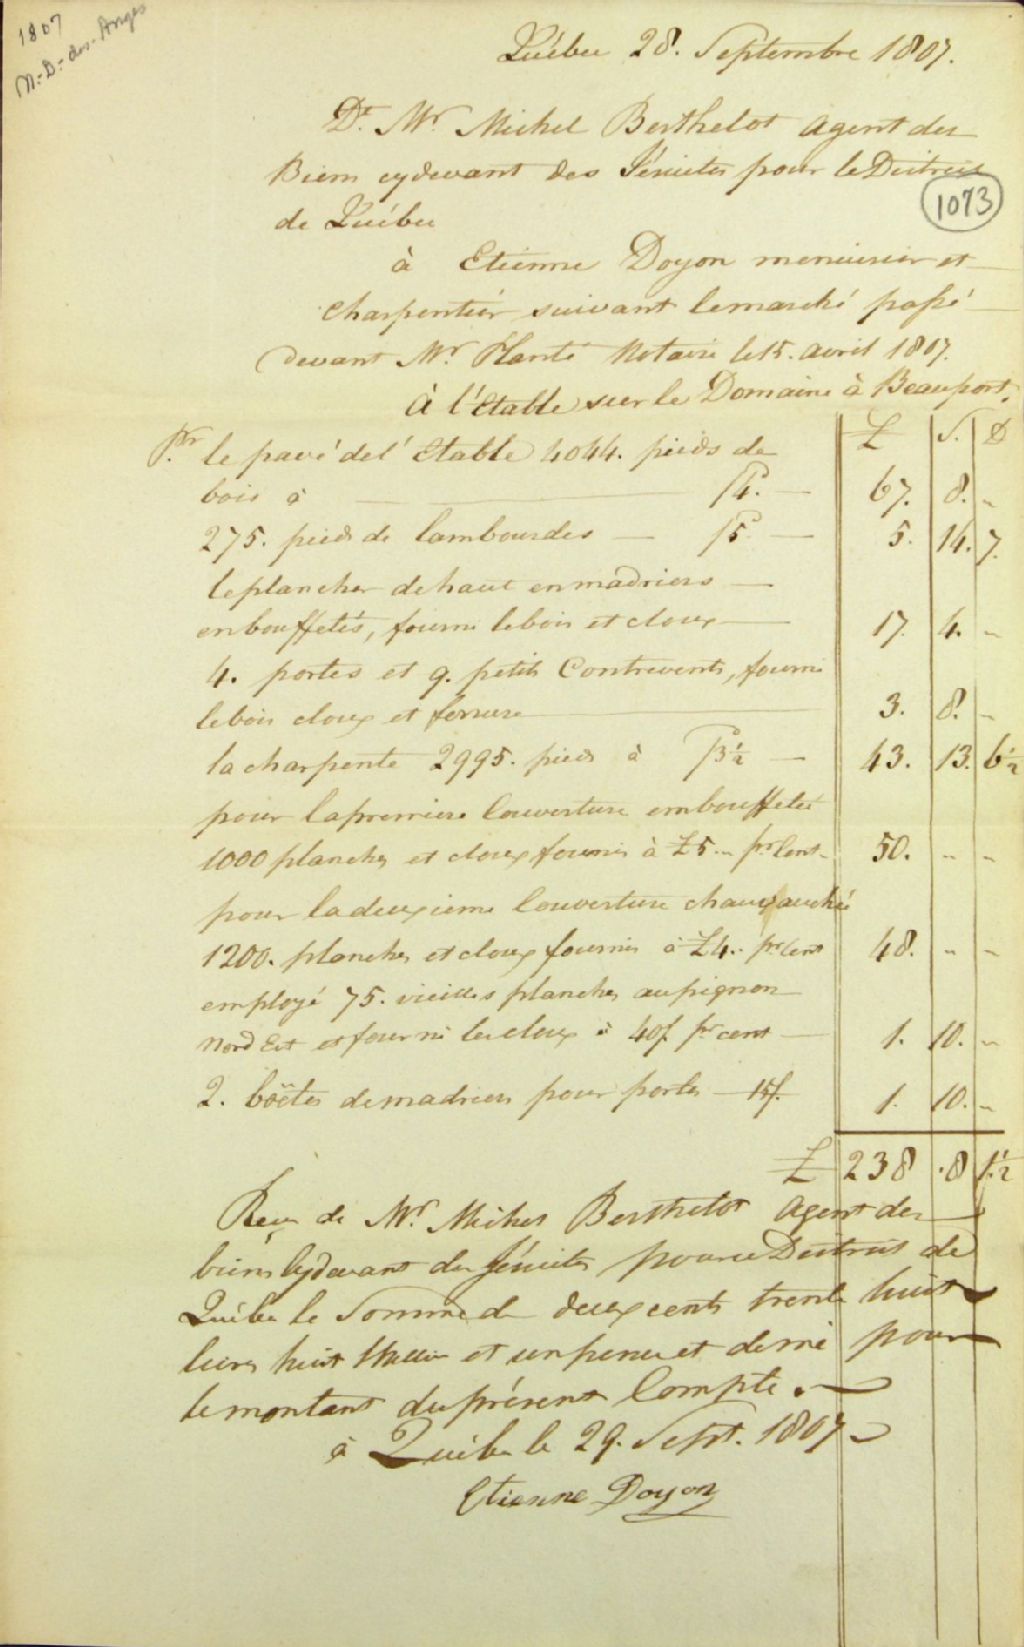 1807
N.-D.-des-Anges
Québec 28. Septembre 1807.
Dt. Mr. Michel Berthelot Agent des
Biens cydevant des Jésuites pour le District
1073
de Québec
à Etienne Doyon menuisier et
Charpentier suivant le marché passé
devant Mr. Planté Notaire le 15. avril 1807.
À l'Etable sur le Domaine à Beauport.
£ S. D
Pr. le pavé de l'Etable 4044. pieds de
bois à 4. 67. 8. "
275. pieds de lambourdes 5 5. 14. 7.
le plancher de haut en madriers
embouffetés, fourni le bois et cloux 17. 4. "
4. portes et 9. petits Contrevents, fourni
le bois cloux et ferrure 3. 8. "
la charpente 2995. pieds à 3½ 43. 13. 6½
pour la premiere Couverture embouffetée
1000 planches et cloux fournis à £5 " pr. Cent 50. " "
pour la deuxieme Couverture chauvauchée
1200. planches et cloux fournis à £4 " pr. Cent 48. " "
employé 75. vieilles planches au pignon
Nord Est et fourni les cloux à 40/. pr cent 1. 10. "
2. boëtes de madriers pour portes 15/. 1. 10. "
£ 238 .8 1.½
Reçu de Mr. Michel Berthelot Agent des
biens Cydevant des Jésuites pour le District de
Québec la Somme de deux cents trente huit
livres huit Shellin et un pence et demie pour
le montant du présent Compte.
à Québec le 29. Sept. 1807
Etienne Doyon